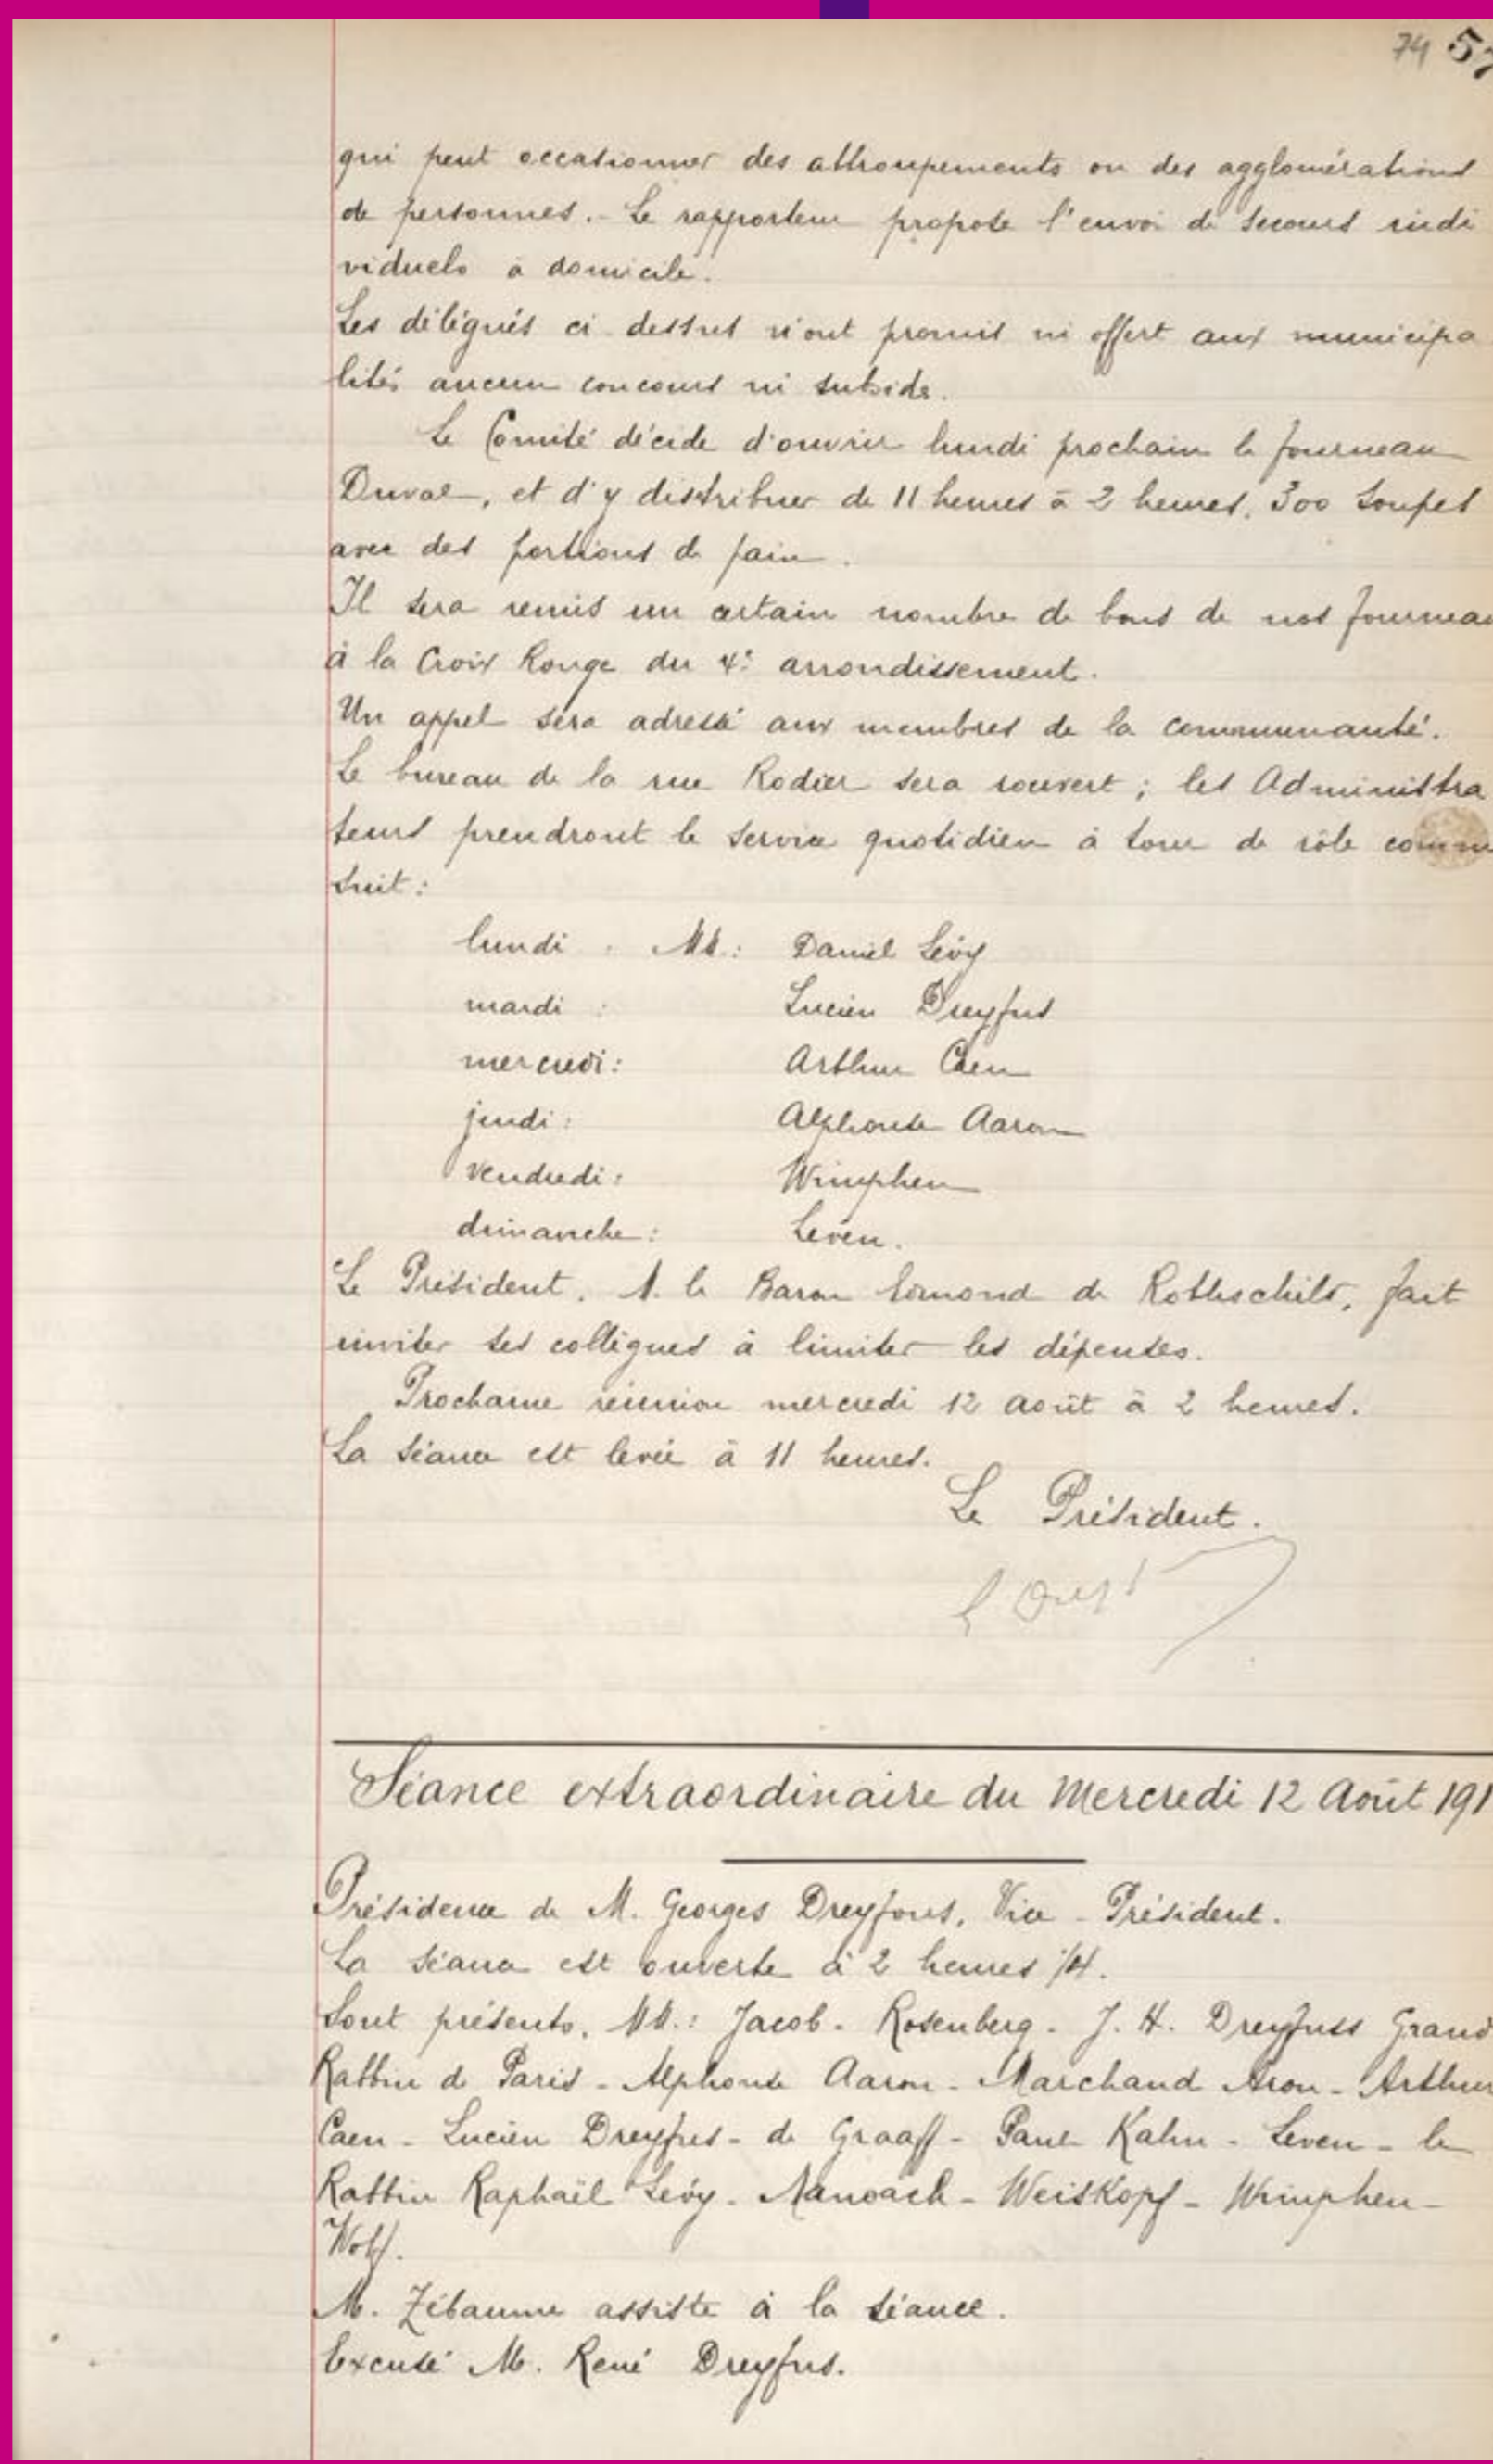 74 57
qui peut occasionner des attroupements ou des agglomérations
de personnes. - Le rapporteur propose l'envoi de secours indi
viduels à domicile.
Les délégués ci dessus n'ont promis ni offert aux municipa
lités aucun concours ni subside.
Le Comité décide d'ouvrir lundi prochain le fourneau
Duval, et d'y distribuer de 11 heures à 2 heures, 300 soupes
avec des portions de pain.
Il sera remis un certain nombre de bons de nos fourneau
à la Croix Rouge du 4e arrondissement.
Un appel sera adressé aux membres de la communauté.
Le bureau de la rue Rodier sera rouvert ; les Administra
teurs prendront le service quotidien à tour de rôle comm
suit :
lundi : MM : Daniel Lévy
mardi : Lucien Dreyfus
mercredi : Arthur Caen
jeudi : Alphonse Aaron
vendredi : Wimphen
dimanche : Leven.
Le Président, M. le Baron Edmond de Rothschild, fait
inviter ses collègues à limiter les dépenses.
Prochaine réunion mercredi 12 août à 2 heures.
La séance est levée à 11 heures.
Le Président.
Séance extraordinaire du Mercredi 12 Août 191
Présidence de M. Georges Dreyfous, Vice-Président.
La séance est ouverte à 2 heures 1/4.
Sont présents, MM. : Jacob - Rosenberg - J. H. Dreyfuss Grand
Rabbin de Paris - Alphonse Aaron - Marchand Aron - Arthur
Caen - Lucien Dreyfus - de Graaff - Paul Kahn - Leven - le
Rabbin Raphaël Lévy - Manoach - Weiskopf - Wimphen -
Wolf.
M. Zébaume assiste à la séance.
Excusé M. René Dreyfus.